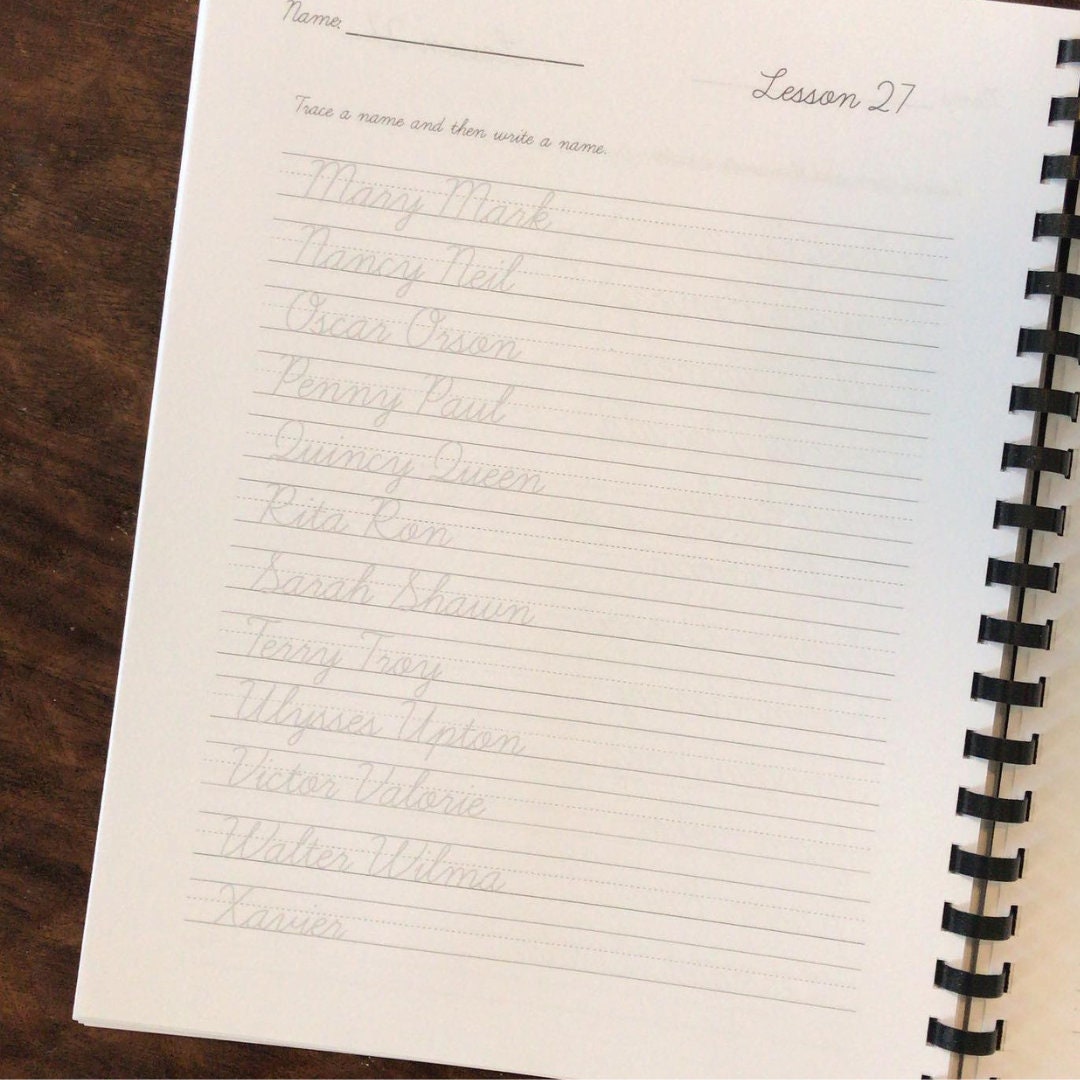 Name:
Lesson 27
Trace a name and then write a name.
Mary Mark
Nancy Neil
Oscar Orson
Penny Paul
Quincy Queen
Rita Ron
Sarah Shawn
Terry Troy
Ulysses Upton
Victor Valorie
Walter Wilma
Xavier